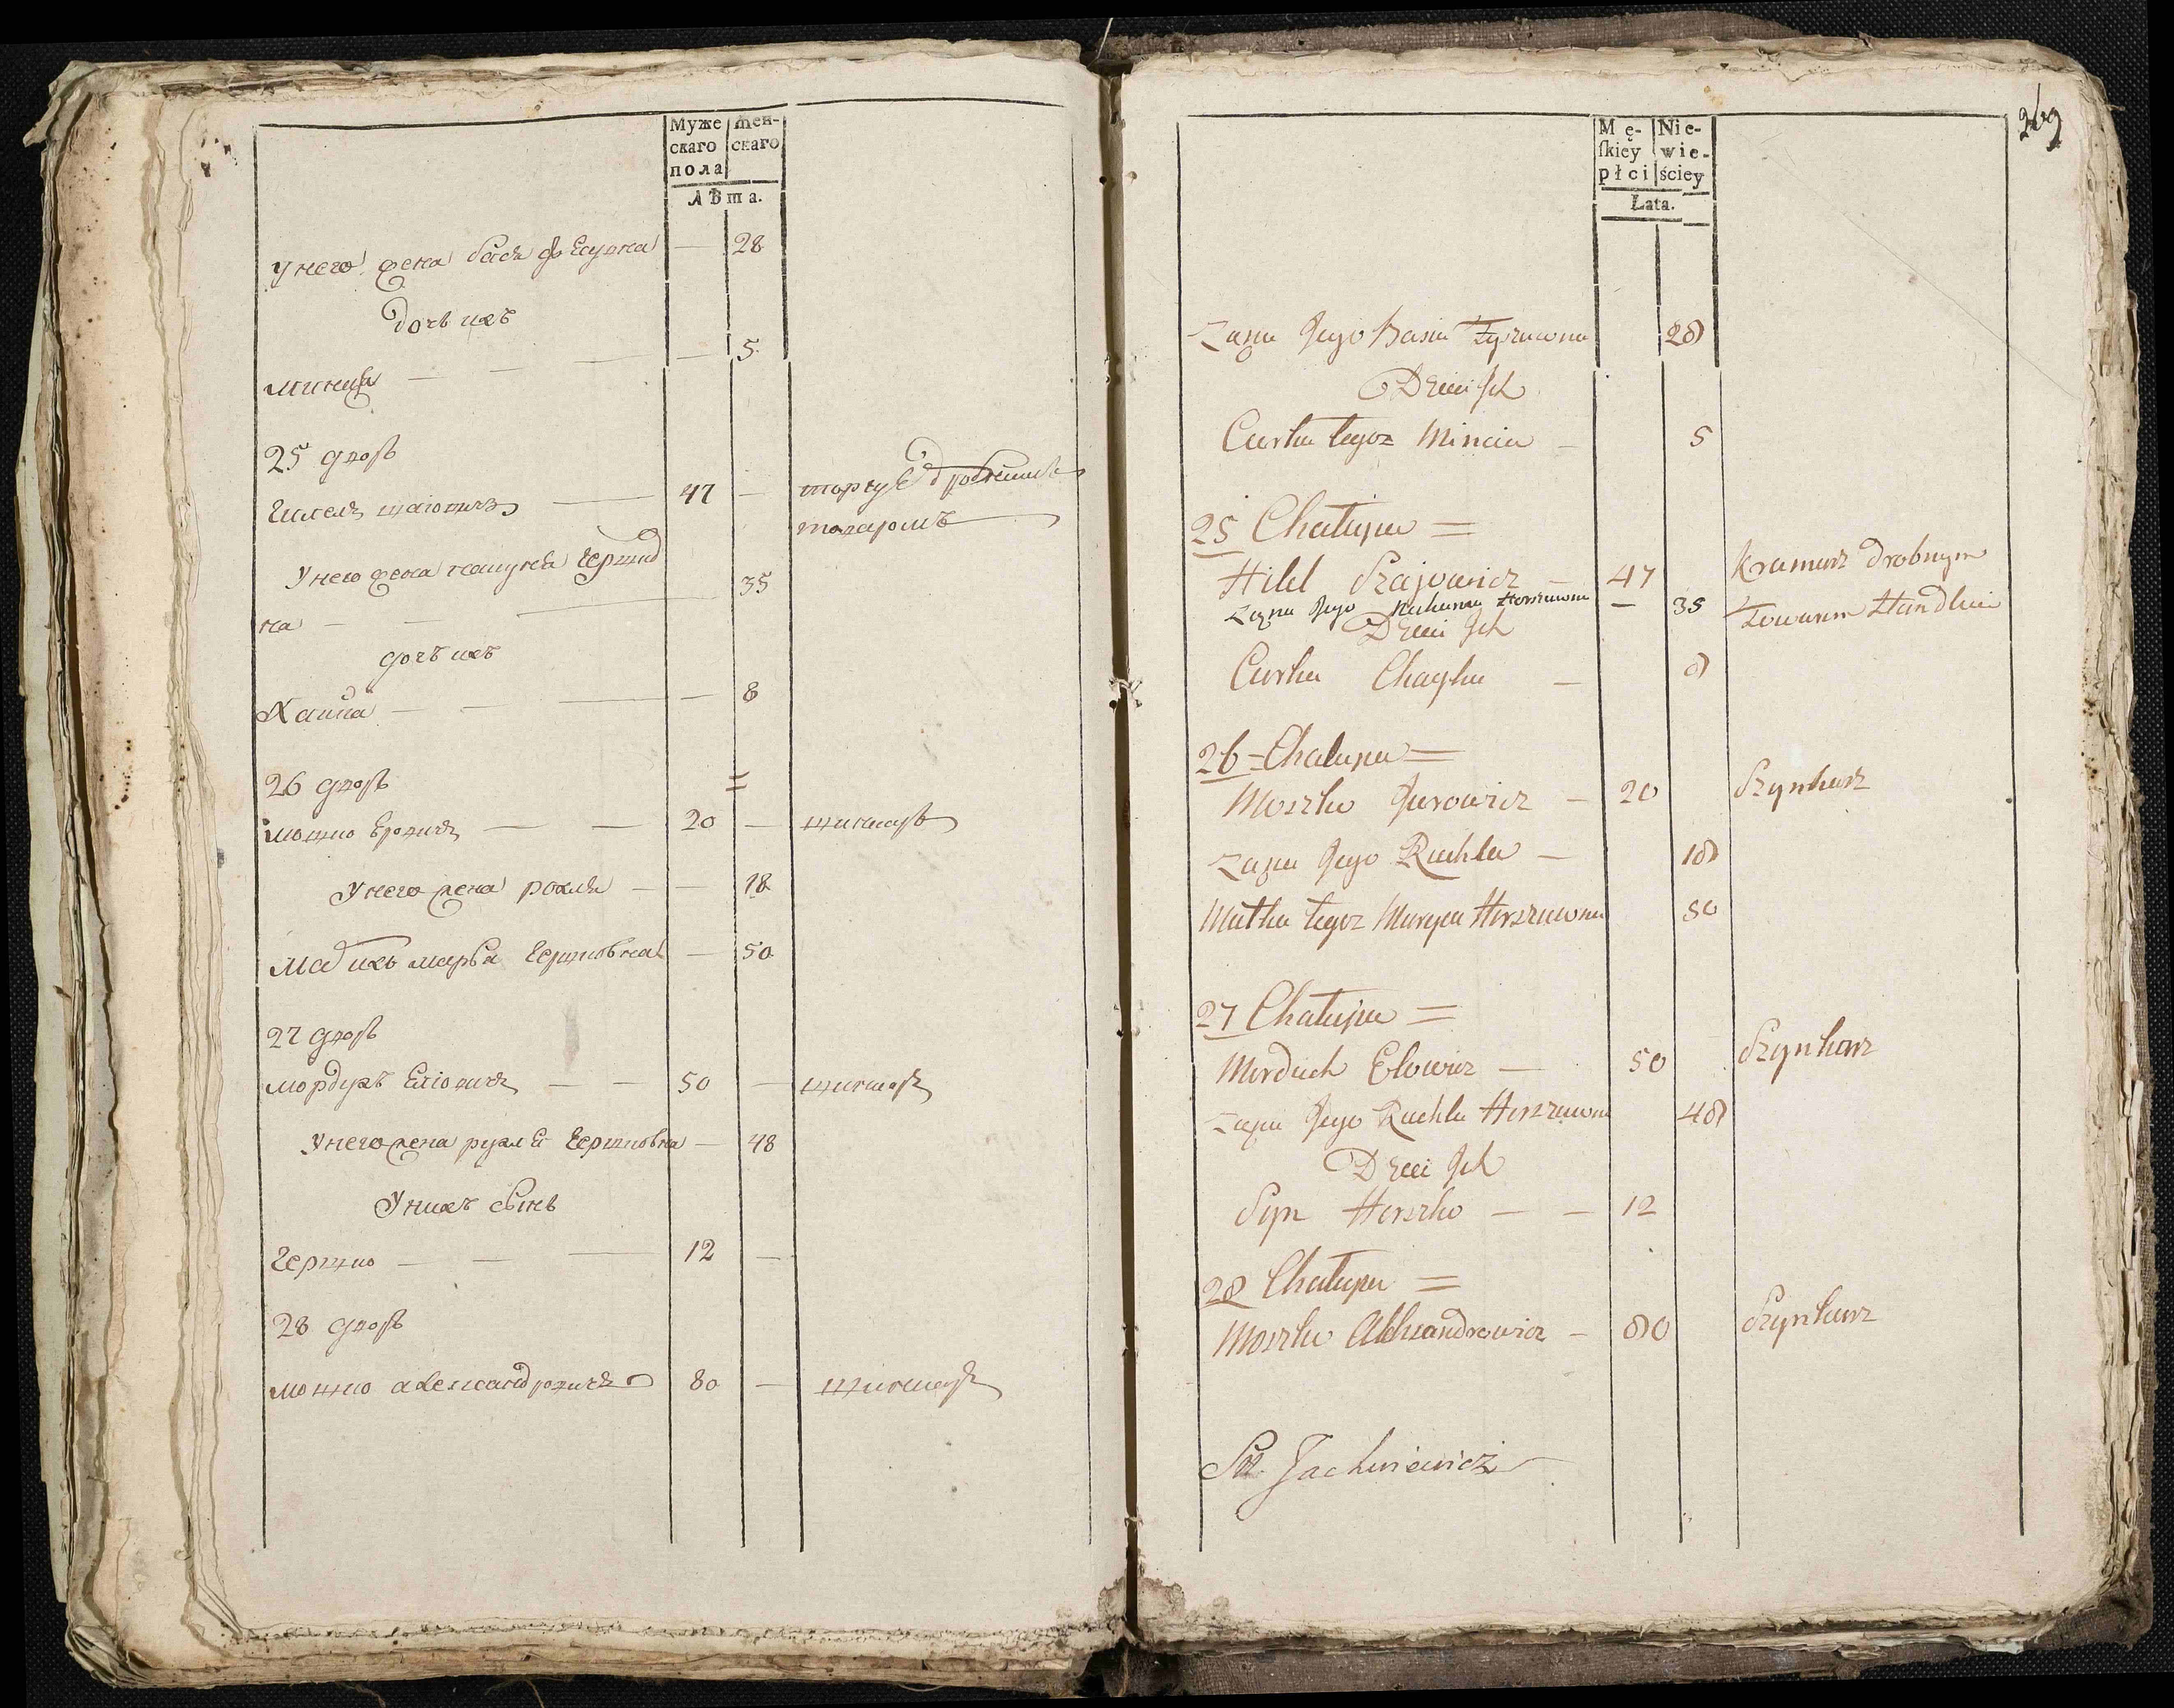 Муже
скаго
пола
жен-
скаго
Лѣта.
у него жена бася — 28
дочь ихъ
минця — — — 5
25 дворъ
гилель шаiовичъ — 47 — торгуе дробнимъ
товаромъ
У него жена нахумка гершко
вна — — — 35
дочъ ихъ
Хаика — — — — 8
26 дворъ
мошко Еровичъ — — 20 — шинкаръ
У него жена рохля — — 18
Мать ихъ марья Гершковна — 50
27 дворъ
мордухъ Елiовичъ — — 50 — шинкаръ
У него жена рухля Гершковна — 48
У нихъ сынъ
гершко — — — 12 —
28 дворъ
мошко александровичъ 80 — шинкаръ
269
Mę-
ſkiey
płci
Nie-
wie-
ściey
Lata.
Żąna Jego Basia 28
Dzieci Jch
Curka tegoz Mincia — 5
25 Chałupa =
Hilel Szajowicz — 47 Kramarz drobnym
Żąna Jego Herszkowna — 35 Towarem Handluie
Dzieci Jch
Curka Chayka — 8
26 = Chalupa =
Moszko Jurowicz — 20 Szynkarz
Żąna Jego Ruchla — 18
Matka tegoz Maryia Herszkowna 50
27 Chałupa =
Morduch Elowicz — 50 Szynkarz
Żąna Jego Ruchla Herszkowna 48
Dzieci Jch
Syn Herszko — — 12
28 Chałupa =
Moszko Alexandrowicz — 80 Szynkarz
Jachniewicz